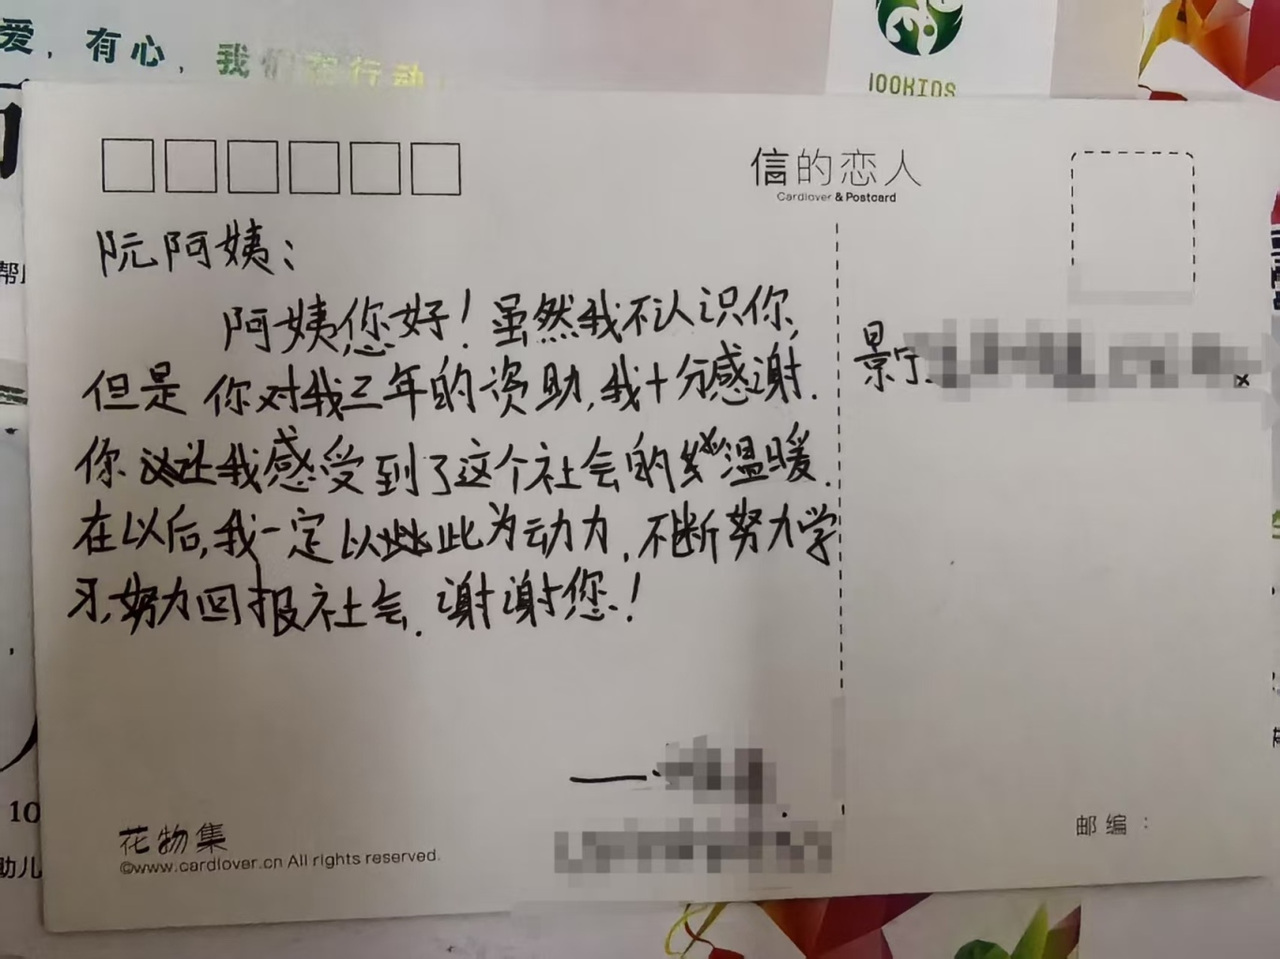 爱，有心，我们在行动
100KIDS
信的恋人
Cardlover & Postcard
阮阿姨：
阿姨您好！虽然我不认识你，
但是你对我三年的资助，我十分感谢.
你让我感受到了这个社会的温暖.
在以后，我一定以此为动力，不断努力学
习，努力回报社会. 谢谢您！
景宁
花物集
©www.cardlover.cn All rights reserved.
邮编：
10
助儿